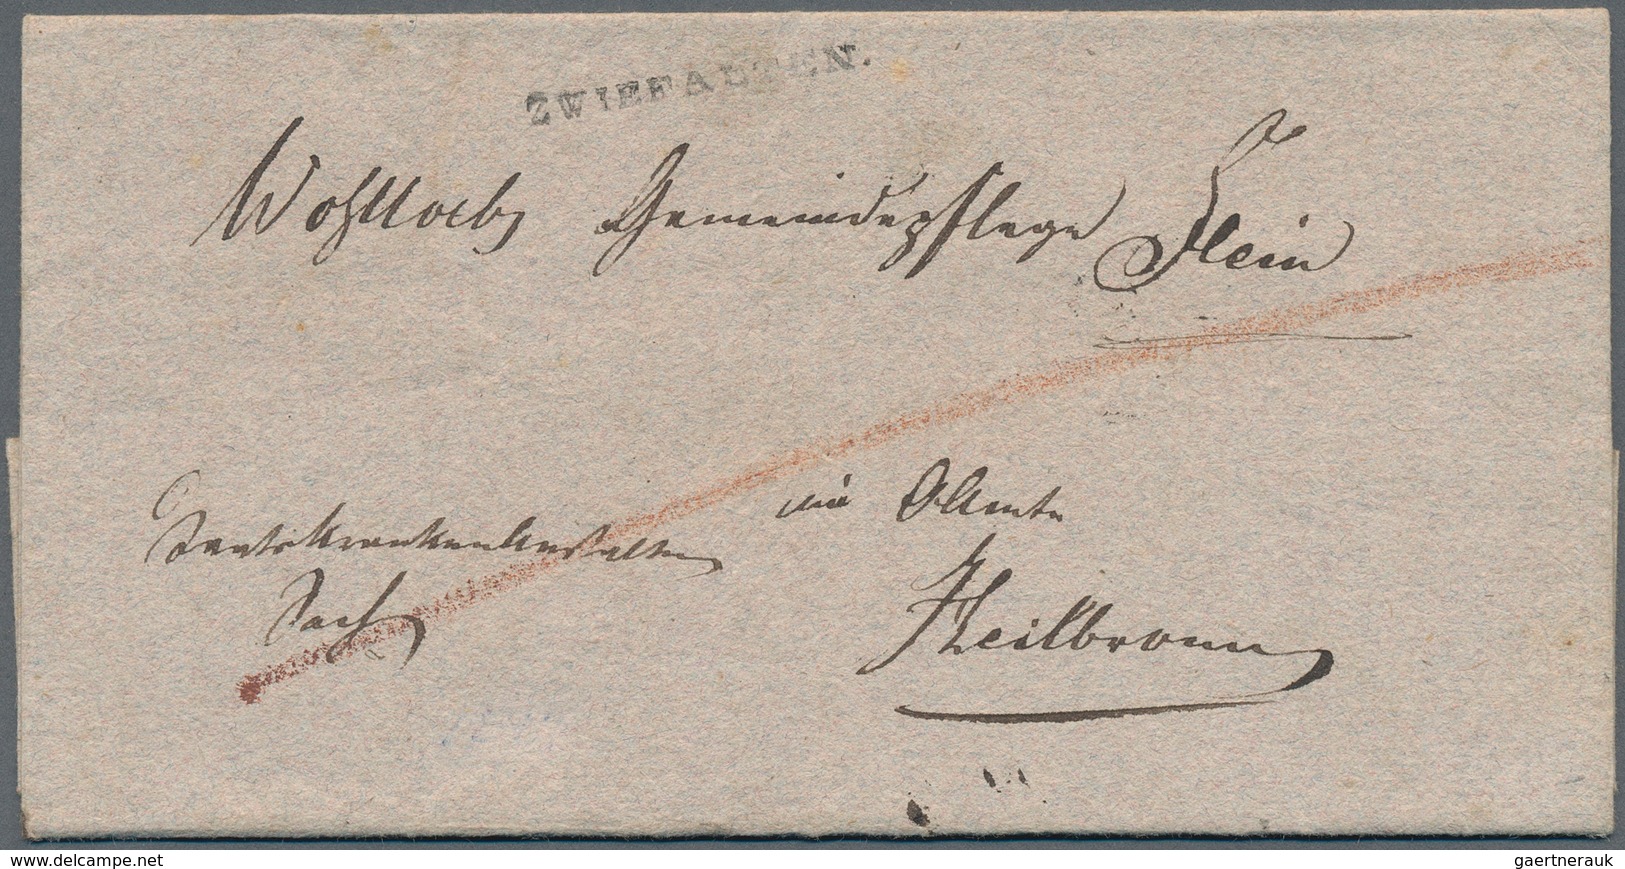 ZWIEFALTEN.
Wohllöbl Gemeindepflege Flein
im OAmte
StaatsKrankenAnstalten
Sach
Heilbronn
www.delcampe.net
gaertnerauk